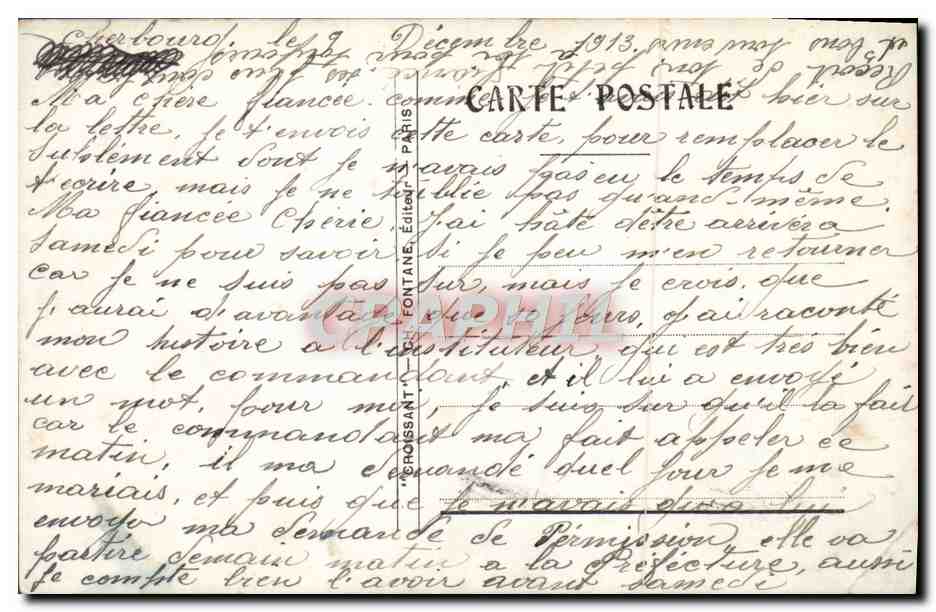 Cherbourg le 9 Décembre 1913.
CARTE POSTALE
Ma chère fiancée. comme hier sur
la lettre, je t'envois cette carte, pour remplacer le
sublément dont je n'avais pas eu le temps de
t'ecrire, mais je ne t'oublie pas quand-même.
Ma fiancée cherie, J'ai hâte d'être arrivéra
samedi pour savoir si je peu m'en retourner
car je ne suis pas sur, mais je crois, que
j'aurai d'avantage que 10 jours, j'ai raconté
mon histoire a l'instituteur, qui est très bien
avec le commandant, et il lui a envoyé
un mot, pour moi, je suis sur qu'il la fait
car le commandant ma fait appeler ce
matin, il ma demandé quel jour je me
mariais, et puis que je n'avais qu'a lui
envoyo ma demande de Permission, elle va
partire demain matin a la Préfecture, aussi
je compte bien l'avoir avant samedi
"CROISSANT" — CH. FONTANE, Éditeur, PARIS
CPAPHIL